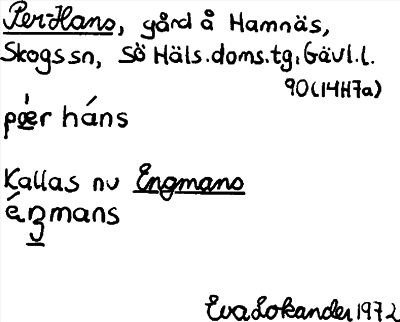 Per-Hans, gård å Hamnäs,
Skogs sn, Sö Häls.doms.tg, Gävl.l.
90(14H7a)
pǽr háns
Kallas nu Engmans
éŋmans
Eva Lokander 1972